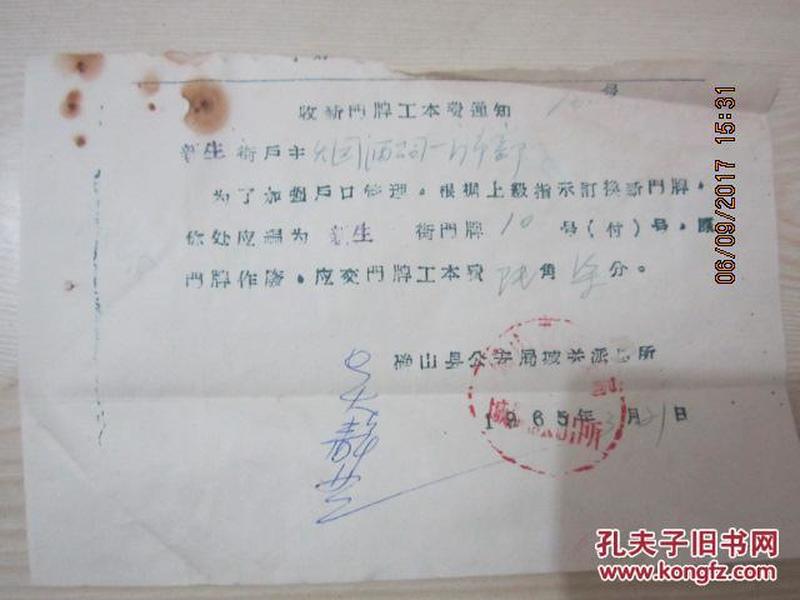 号
收新門牌工本费通知
新生街戶主
为了加强戶口管理。根据上級指示訂换新門牌，
你处应编为 新生 街門牌 10 号(付) 号，原
門牌作廢，应交門牌工本费 陆角 分。
确山县公安局城关派出所
1965年3月21日
06/09/2017 15:31
孔夫子旧书网
www.kongfz.com